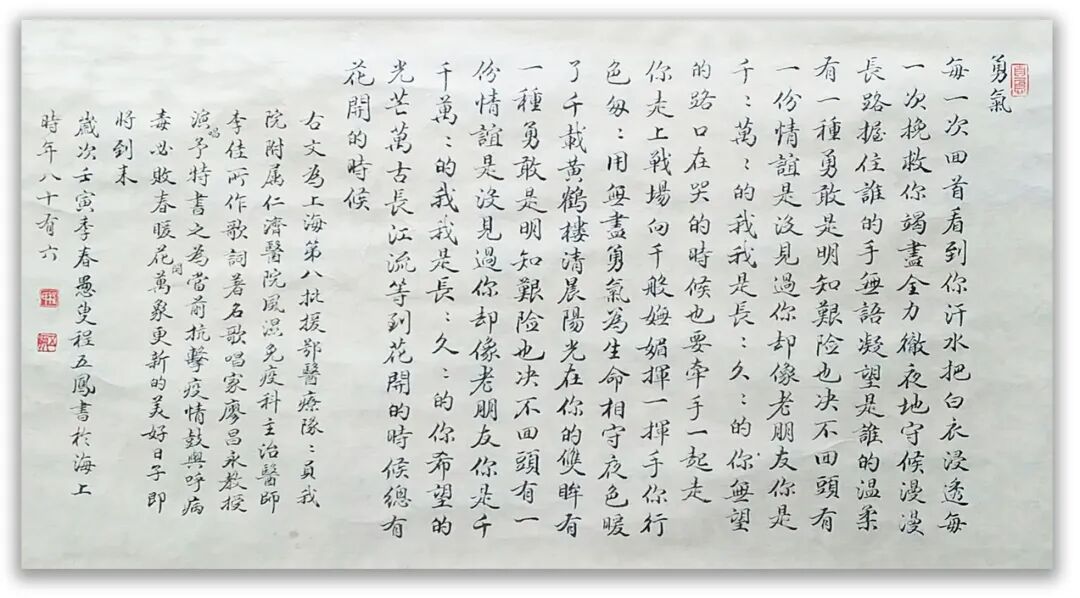 勇氣
每一次回首看到你汗水把白衣浸透每
一次挽救你竭盡全力徹夜地守候漫漫
長路握住誰的手無語凝望是誰的温柔
有一種勇敢是明知艱险也决不回頭有
一份情誼是沒見過你却像老朋友你是
千:萬:的我我是長:久:的你無望
的路口在哭的時候也要牵手一起走
你走上戰場向千般嫵媚揮一揮手你行
色匆:用無盡勇氣為生命相守夜色暖
了千載黄鶴樓清晨陽光在你的雙眸有
一種勇敢是明知艱险也决不回頭有一
份情誼是沒見過你却像老朋友你是千
千萬:的我我是長:久:的你希望的
光芒萬古長江流等到花開的時候總有
花開的時候
右文為上海第八批援鄂醫療隊:員我
院附属仁濟醫院風湿免疫科主治醫師
李佳所作歌詞著名歌唱家廖昌永教授
演唱予特書之為當前抗擊疫情鼓與呼病
毒必敗春暖花開萬象更新的美好日子即
将到来
歲次壬寅季春愚叟程五鳳書於海上
時年八十有六